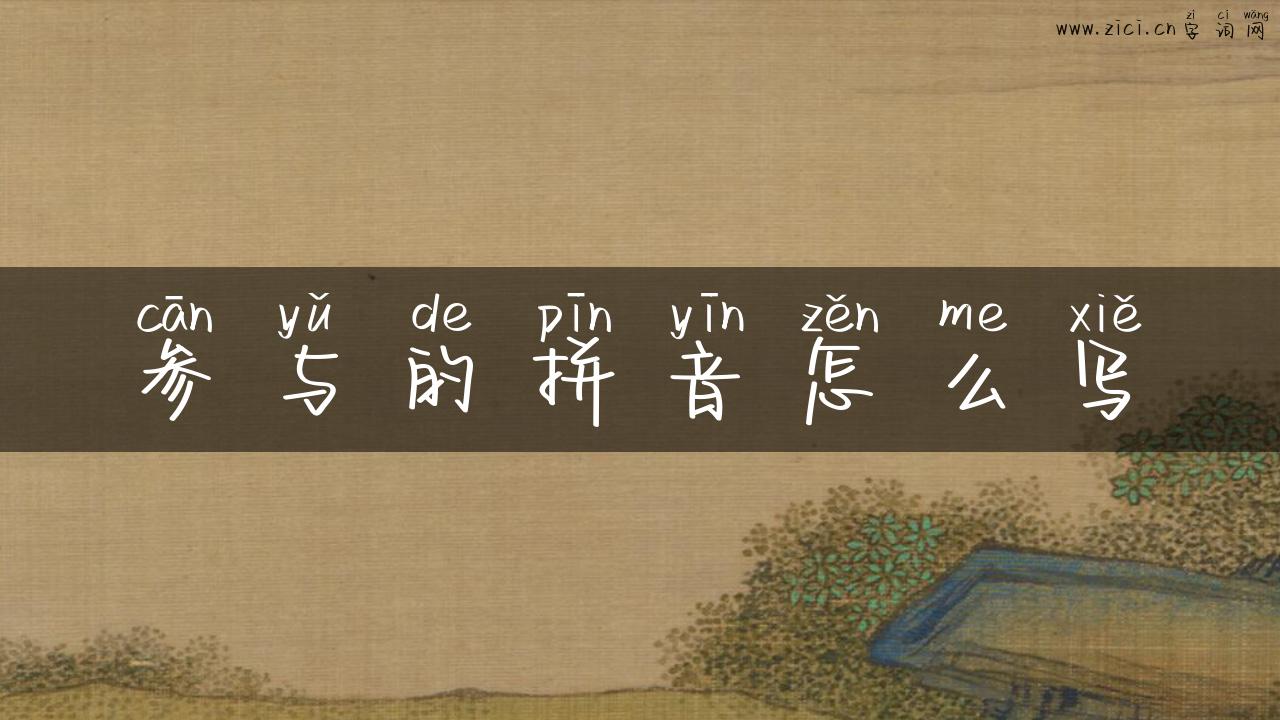 zì cí wǎng
www.zici.cn 字词网
cān yǔ de pīn yīn zěn me xiě
参与的拼音怎么写